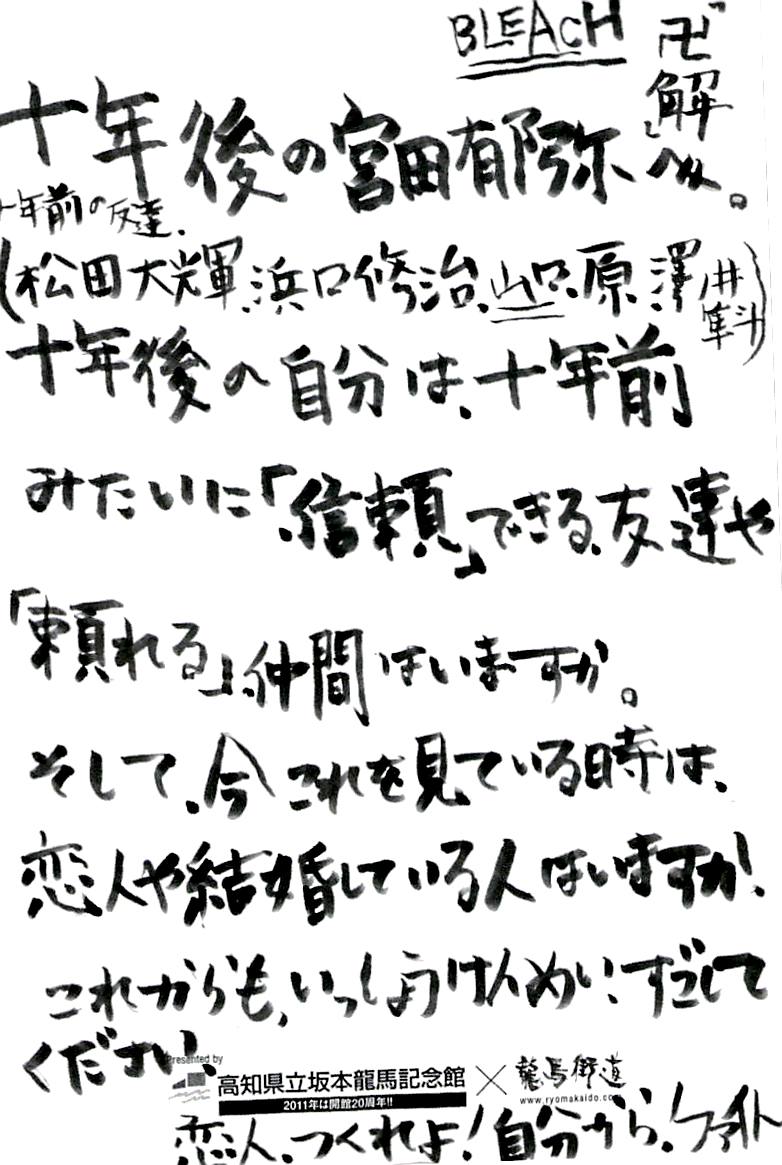 BLEACH
「卍解」
十年後の宮田有弥へ。
十年前の友達.
(松田大輝.浜口修治.山口.原.澤井隼斗)
十年後の自分は、十年前
みたいに「信頼」できる、友達や
「頼れる」仲間はいますか。
そして、今これを見ている時は、
恋人や結婚している人はいますか!
これからも、いっしょうけんめい!すごして
ください、
Presented by
高知県立坂本龍馬記念館×龍馬街道
2011年は開館20周年!! www.ryomakaido.com
恋人、つくれよ!自分から、ファイト